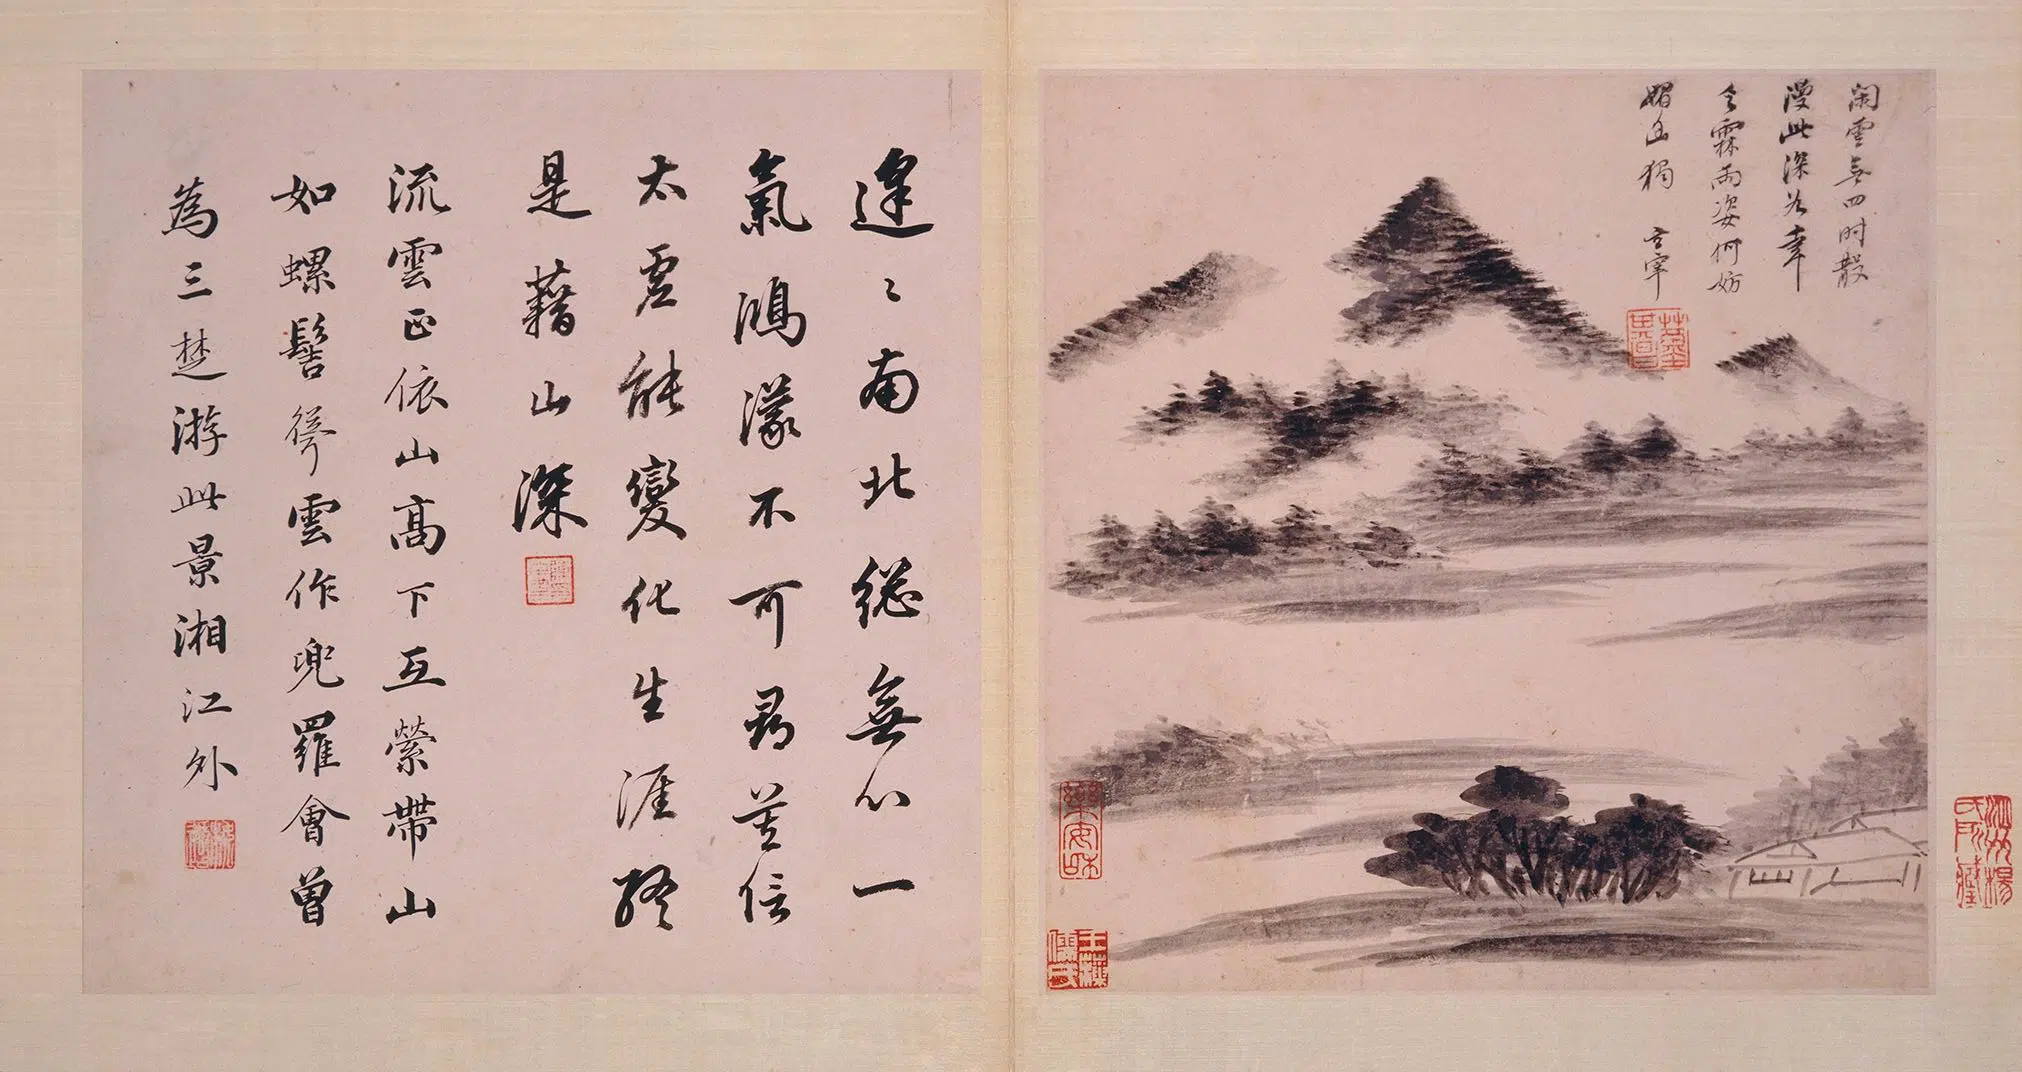 閑雲無四時散
漫此深谷幸
乏霖雨姿何妨
媚幽獨 玄宰
逢〻南北總無心一
氣鴻濛不可尋莫信
太虛能變化生涯終
是藉山深
流雲正依山高下互縈帶山
如螺髻聳雲作兜羅會曾
為三楚游此景湘江外